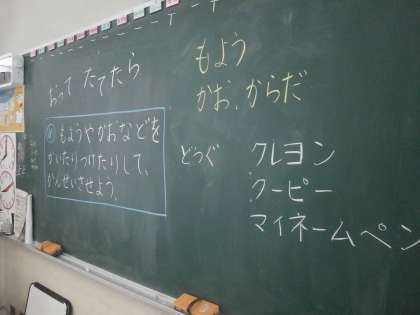 おって たてたら
め もようや かおなどを
かいたりつけたりして、
かんせいさせよう。
もよう
かお、からだ
どうぐ
クレヨン
クーピー
マイネームペン